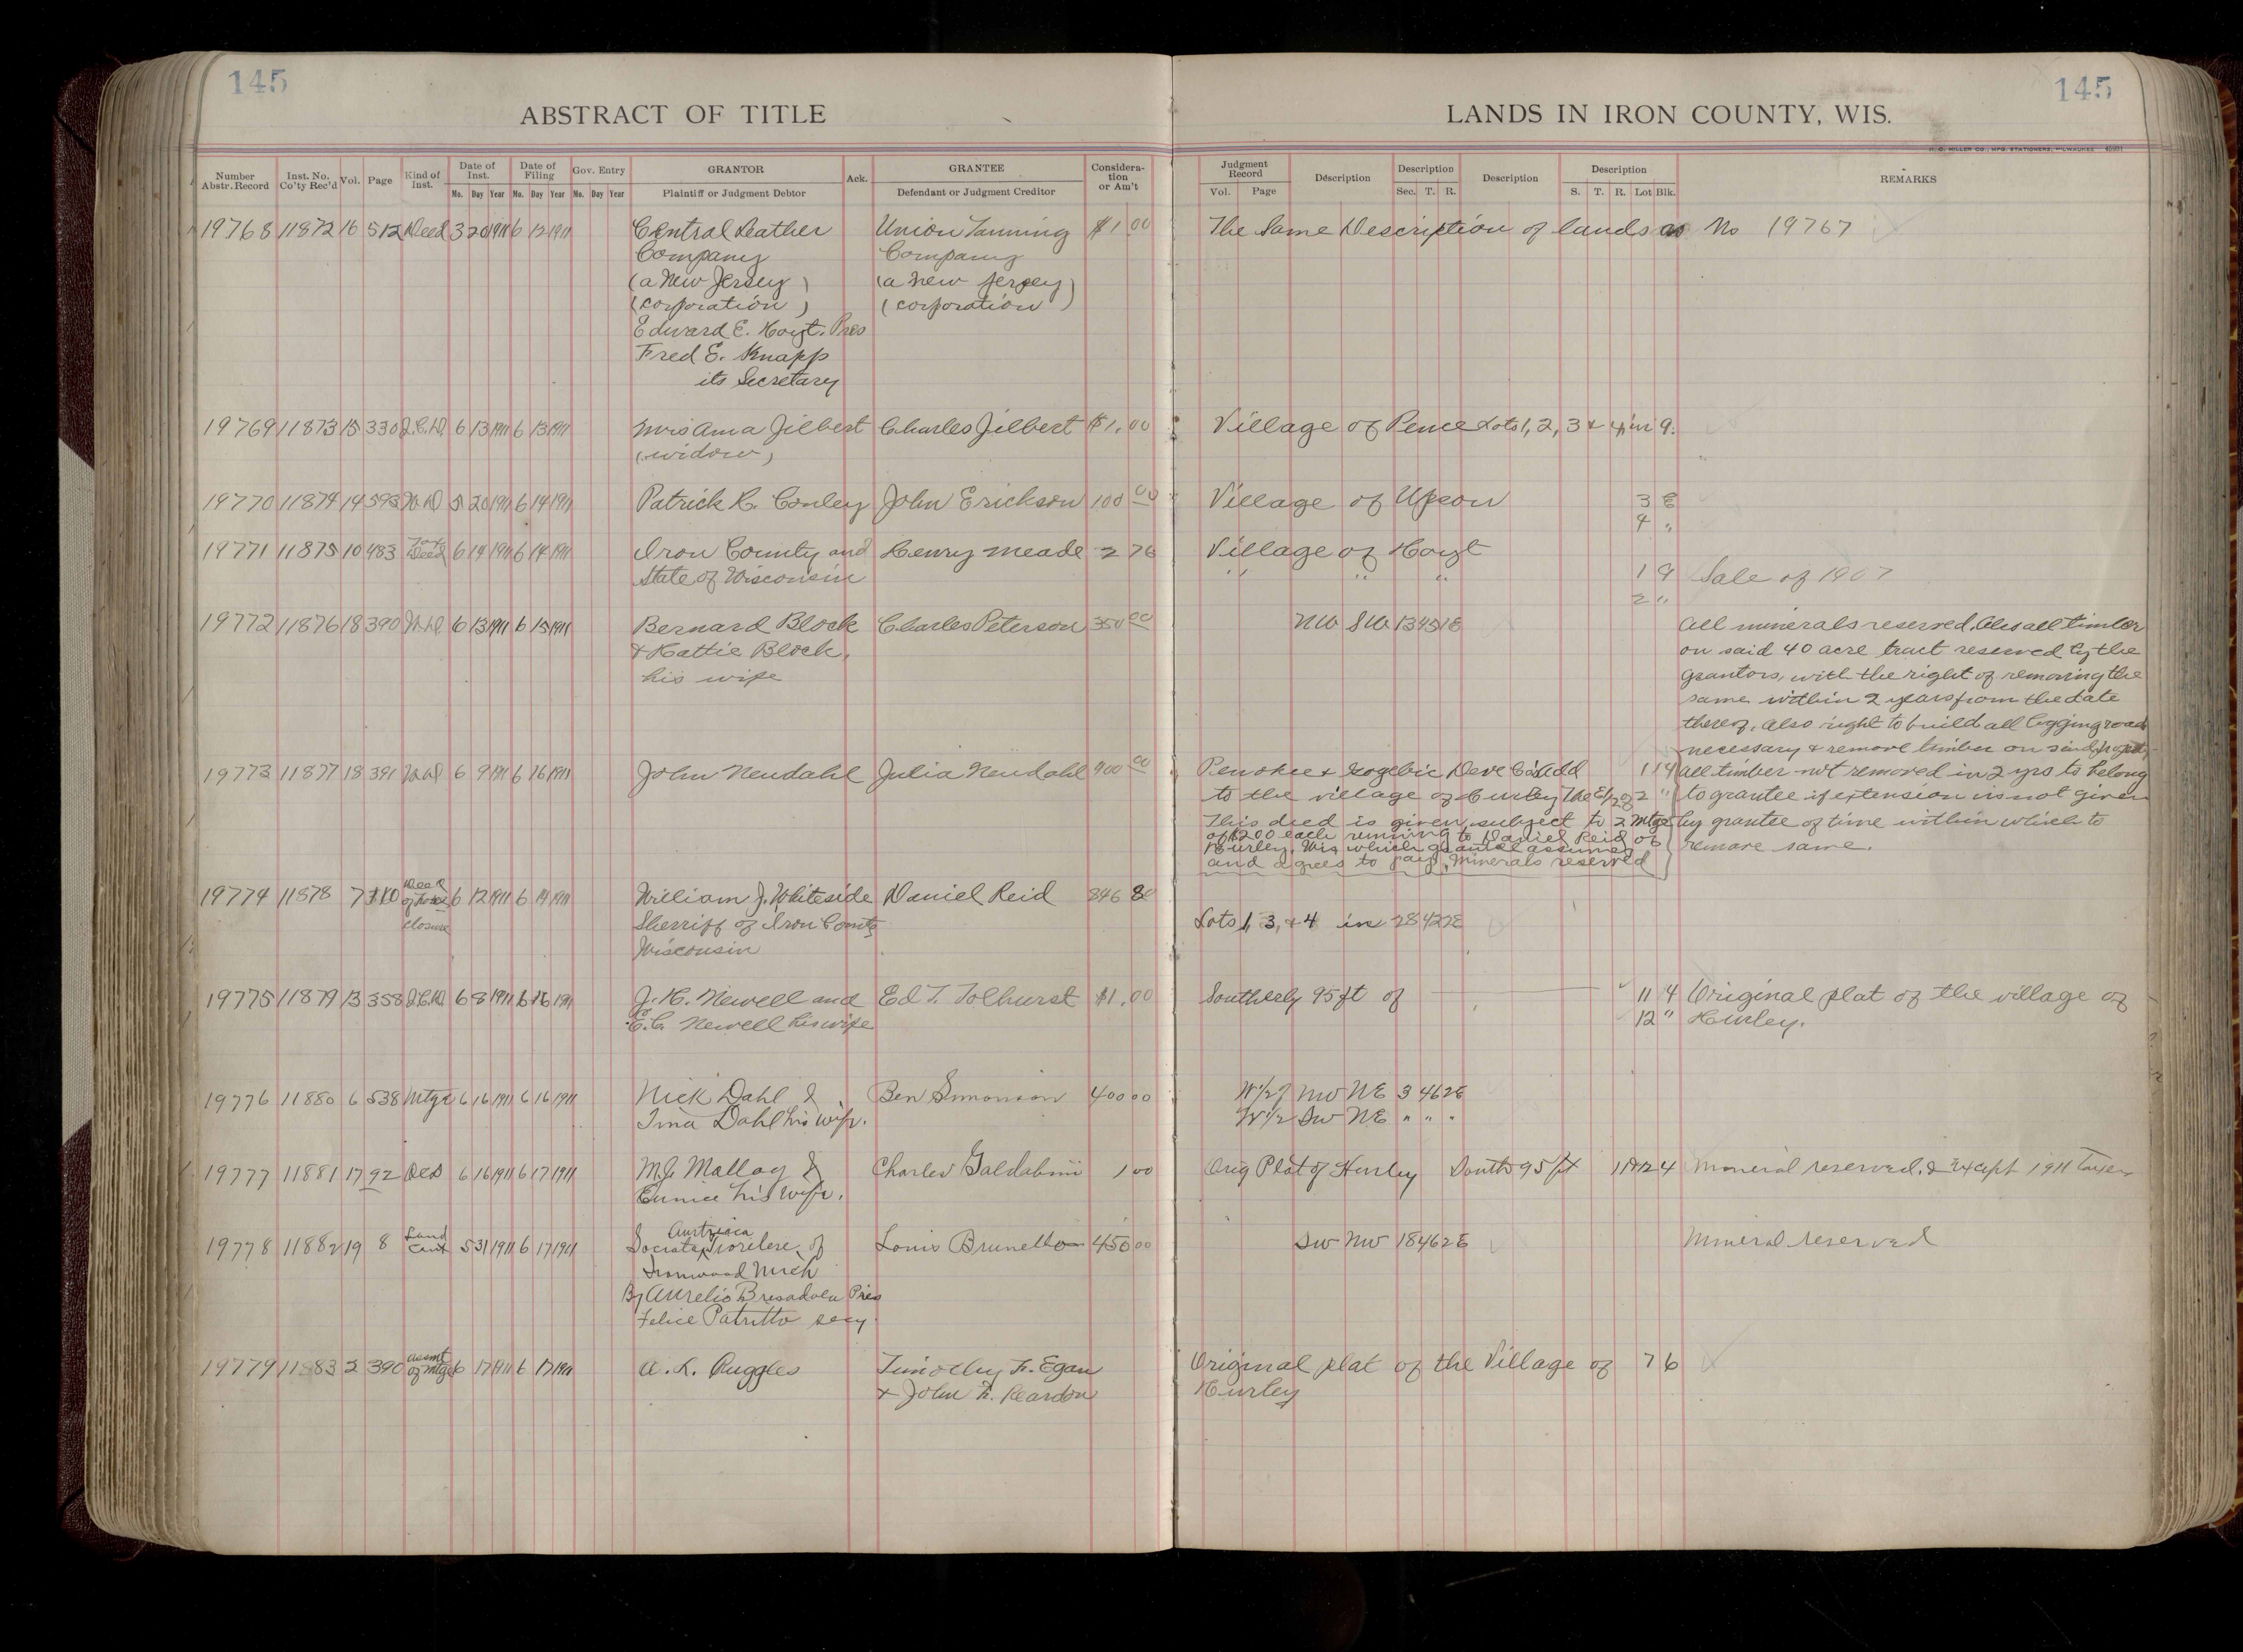 145
145
ABSTRACT OF TITLE
LANDS IN IRON COUNTY, WIS.
H. C. MILLER CO., MFG. STATIONERS, MILWAUKEE
Number Abstr. Record | Inst. No. Co'ty Rec'd | Vol. | Page | Kind of Inst. | Date of Inst. Mo. Day Year | Date of Filing Mo. Day Year | Gov. Entry Mo. Day Year | GRANTOR Plaintiff or Judgment Debtor | Ack. | GRANTEE Defendant or Judgment Creditor | Consideration or Am't | Judgment Record Vol. Page | Description | Description Sec. T. R. | Description | Description S. T. R. Lot Blk. | REMARKS
19768 11872 16 512 Deed 3 20 1911 6 12 1911 Central Leather Union Tanning $1 00 The Same Description of lands as No 19767
Company Company
(a New Jersey) (a New Jersey)
(corporation) (corporation)
Edward E. Hoyt. Pres
Fred E. Knapp
its Secretary
19769 11873 15 330 Q.C.D. 6 13 1911 6 13 1911 Mrs Ama Jilbert Charles Jilbert $1.00 Village of Pence Lots 1, 2, 3 & 4 in 9.
(widow)
19770 11874 14 593 W.D 5 20 1911 6 14 1911 Patrick H. Conley John Erickson 100 00 Village of Upson 3 E
4 "
19771 11875 10 483 Tax Deed 6 14 1911 6 14 1911 Iron County and Henry Meade 2 76 Village of Hoyt
State of Wisconsin " " " 1 9 Sale of 1907
2 "
19772 11876 18 390 W.D. 6 13 1911 6 15 1911 Bernard Block Charles Peterson 350 00 NW SW 13 45 1E All minerals reserved. Also all timber
& Hattie Block, on said 40 acre tract reserved by the
his wife grantors, with the right of removing the
same within 2 years from the date
thereof, also right to build all logging roads
necessary & remove timber on said
19773 11877 18 391 W.D 6 9 1911 6 16 1911 John Neudahl Julia Neudahl 900 00 Penokee & Gogebic Deve Co's Add 1 14 All timber not removed in 2 yrs to belong
to the village of Hurley The E 1/2 of 2 " to grantee if extension is not given
This deed is given subject to 2 Mtgs by grantee of time within which to
of $200 each running to Daniel Reid of remove same.
Hurley, Wis which grantee assumes
and agrees to pay, Minerals reserved
19774 11878 7 110 Deed of Foreclosure 6 12 1911 6 14 1911 William J. Whiteside Daniel Reid 846 80
Sherriff of Iron County Lots 1, 3, & 4 in 28 42 2E
Wisconsin
19775 11879 13 358 Q.C.D. 6 8 1911 6 16 1911 J. H. Newell and Ed T. Tolhurst $1.00 Southerly 95 ft of 11 4 Original plat of the village of
E.C. Newell his wife 12 " Hurley.
19776 11880 6 538 Mtge 6 16 1911 6 16 1911 Nick Dahl & Ben Simonson 400 00 W 1/2 of NW NE 3 46 2E
Tina Dahl his wife. W 1/2 SW NE " " "
19777 11881 17 92 Deed 6 16 1911 6 17 1911 M.J. Malloy & Charles Galdabini 1 00 Orig Plat of Hurley South 95 ft 11&12 4 Mineral reserved. & Except 1911 Taxes
Eunice his wife.
19778 11882 19 8 Land Cont 5 31 1911 6 17 1911 Societa Austriaca Tirolese of Louis Brunello 450 00 SW NW 18 46 2E Mineral reserved
Ironwood Mich
By Aurelio Bresadola Pres
Felice Patritto secy.
19779 11883 2 390 Assmt of Mtge 6 17 1911 6 17 1911 A. R. Ruggles Timothy F. Egan Original plat of the Village of 7 6
& John F. Reardon Hurley